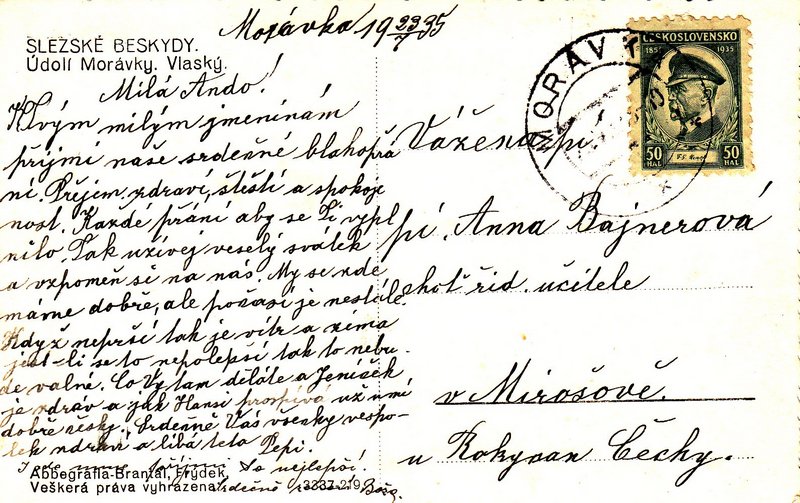 Morávka 19 23/7 35
SLEZSKÉ BESKYDY.
Údolí Morávky. Vlaský.
Milá Ando!
K Tvým milým jmeninám
přijmi naše srdečné blahopřá
ní. Přejem zdraví, štěstí a spokoje
nost. Každé přání aby se Ti vypl
nilo. Tak užívej veselý svátek
a vzpomeň si na nás. My se zde
máme dobře, ale počasí je nestálé.
Když neprší tak je vítr a zima
jest-li se to nepolepší tak to nebu-
de valné. Co Vy tam děláte a Jeníček
je zdráv a jak Hansi prospívá už umí
dobře česky. Srdečně Vás všecky vespo-
lek zdraví a líbá teta Pepi.
To nejlepší!
srdečně Boža.
Abbegrafia-Brantál, Frýdek.
Veškerá práva vyhrazena. 3237-219
MORÁVKA
ČESKOSLOVENSKO
1850 1935
50 HAL 50 HAL
Vážená pí.
pí. Anna Bajnerová
choť říd. učitele
v Mirošově.
u Rokycan Čechy.